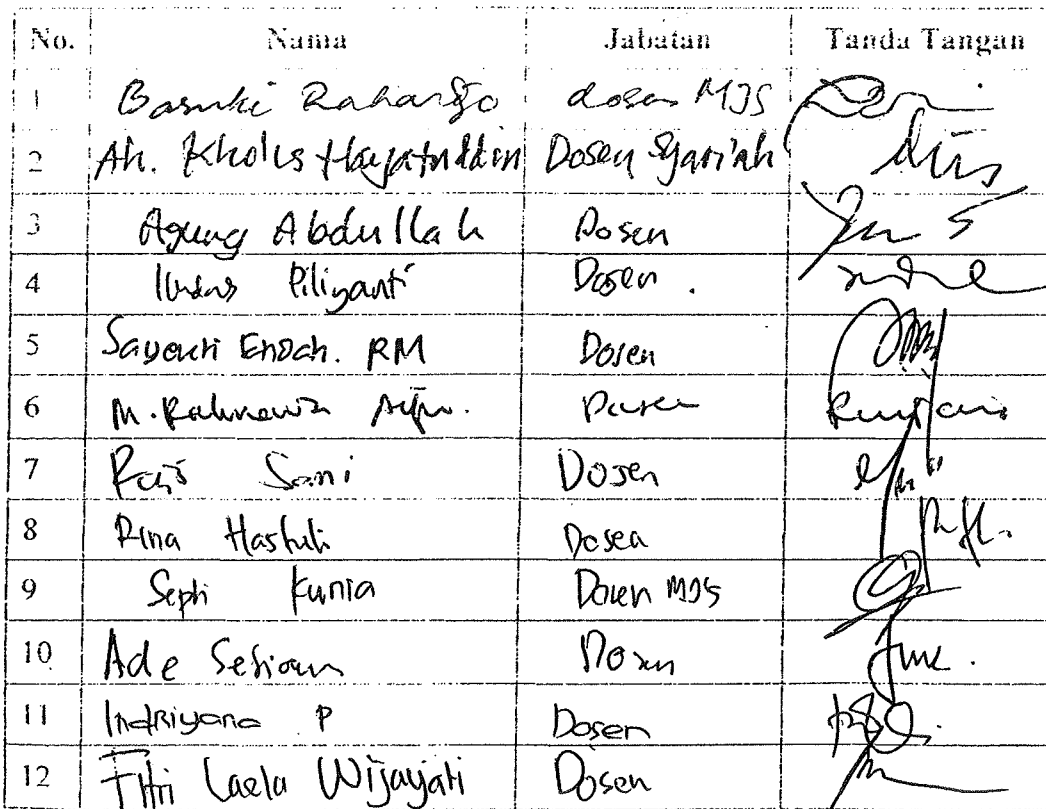 No. Nama Jabatan Tanda Tangan
1 Basuki Rahardjo dosen MJS
2 Ah. Kholis Hayatuddin Dosen Syari'ah
3 Agung Abdullah Dosen
4 Piliyanti Dosen.
5 Sayekti Endah. RM Dosen
6 M. Rahmawan Dosen
7 Rais Sani Dosen
8 Rina Hastuti Dosen
9 Septi Kurnia Dosen MJS
10 Ade Setiawan Dosen
11 Indriyana P Dosen
12 Fitri Laela Wijayati Dosen